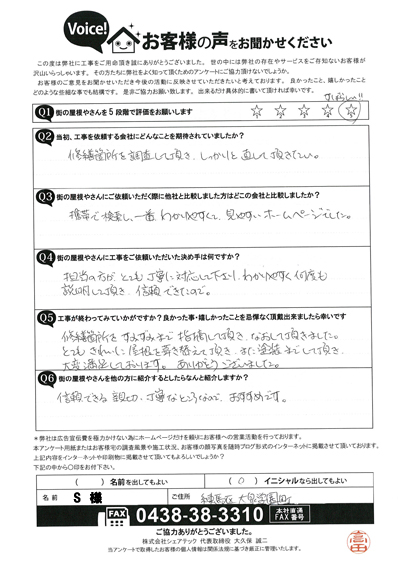 Voice! お客様の声をお聞かせください
この度は弊社に工事をご用命頂き誠にありがとうございました。世の中には弊社の存在やサービスをご存知ないお客様が
沢山いらっしゃいます。その方たちに弊社をよく知って頂くためのアンケートにご協力頂けないでしょうか。
お客様のご意見をお聞かせいただき今後の活動に反映させていただきたいと考えております。良かったこと、嬉しかったこと
どのような些細な事でも結構です。是非ご協力お願い致します。出来るだけ具体的に書いて頂ければ幸いです。
すばらしい!!
Q1 街の屋根やさんを5段階で評価をお願いします ☆ ☆ ☆ ☆ ☆
Q2 当初、工事を依頼する会社にどんなことを期待されていましたか?
修繕箇所を調査して頂き、しっかりと直して頂きたい。
Q3 街の屋根やさんにご依頼いただく際に他社と比較しました方はどこの会社と比較しましたか?
携帯で検索し、一番わかりやすくて、見やすいホームページでした。
Q4 街の屋根やさんに工事をご依頼いただいた決め手は何ですか?
担当の方が、とても丁寧に対応して下さり、わかりやすく何度も
説明して頂き、信頼できたので。
Q5 工事が終わってみていかがですか?良かった事・嬉しかったことを忌憚なく頂戴出来ましたら幸いです
修繕箇所をすみずみまで指摘して頂き、なおして頂きました。
とてもきれいに屋根を葺き替えて頂き、また塗装までして頂き、
大変満足しております。ありがとうございました。
Q6 街の屋根やさんを他の方に紹介するとしたらなんと紹介しますか?
信頼できる親切、丁寧なところなので、おすすめです。
*弊社は広告宣伝費を極力かけない為にホームページだけを頼りにお客様への営業活動を行っております。
本アンケート用紙またはお客様宅の調査風景や施工状況、お客様の顔写真を随時ブログ形式のインターネットに掲載させて頂いております。
上記内容をインターネットや印刷物に掲載させて頂いてもよろしいでしょうか?
下記の中から〇印をお付下さい。
( ) 名前を出してもよい ( 〇 ) イニシャルなら出してもよい
名前 S 様 ご住所 練馬区大泉学園町
FAX 0438-38-3310 本社直通 FAX番号
ご協力ありがとうございました。
株式会社シェアテック 代表取締役 大久保 誠二
当アンケートで取得したお客様の個人情報は関係法規に基づき厳正に管理いたします。